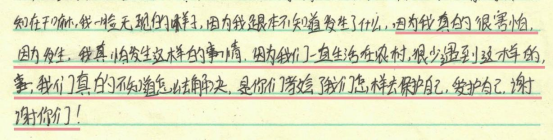 知在干嘛，我一脸无现的样子，因为我是跟本不知道发生了什么，因为我真的很害怕，
因为发生，我真怕发生这样的事情，因为我们一直生活在农村，很少遇到这样的，
事，我们真的不知道怎么去解决，是你们教给了我们怎样去保护自己，爱护自己，谢
谢你们！